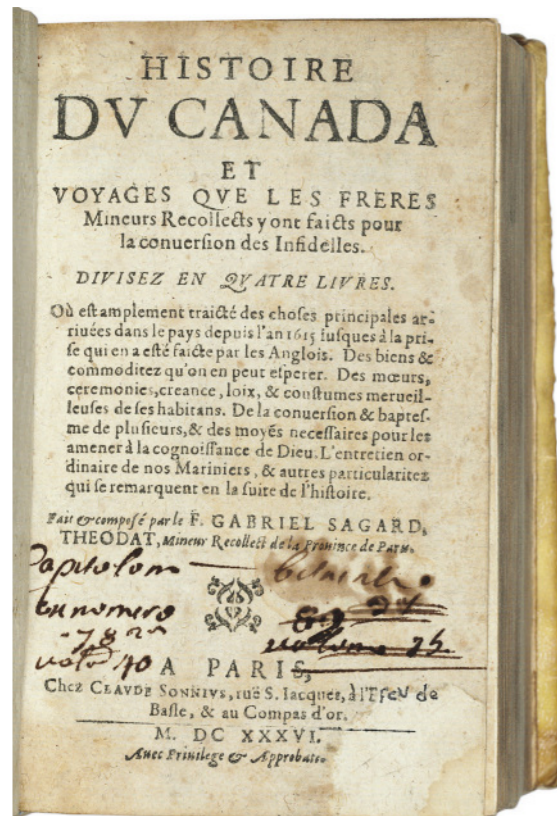 HISTOIRE
DV CANADA
ET
VOYAGES QVE LES FRERES
Mineurs Recollects y ont faicts pour
la conuersion des Infidelles.
DIVISEZ EN QVATRE LIVRES.
Où est amplement traicté des choses principales ar-
riuées dans le pays depuis l'an 1615 iusques à la pri-
se qui en a esté faicte par les Anglois. Des biens &
commoditez qu'on en peut esperer. Des mœurs,
ceremonies, creance, loix, & coustumes merueil-
leuses de ses habitans. De la conuersion & baptes-
me de plusieurs, & des moyẽs necessaires pour les
amener à la cognoissance de Dieu. L'entretien or-
dinaire de nos Mariniers, & autres particularitez
qui se remarquent en la suite de l'histoire.
Fait & composé par le F. GABRIEL SAGARD,
THEODAT, Mineur Recollect de la Prouince de Paris.
A PARIS,
Chez CLAVDE SONNIVS, ruë S. Iacques, à l'Escu de
Basle, & au Compas d'or.
M. DC XXXVI.
Auec Priuilege & Approbatiō